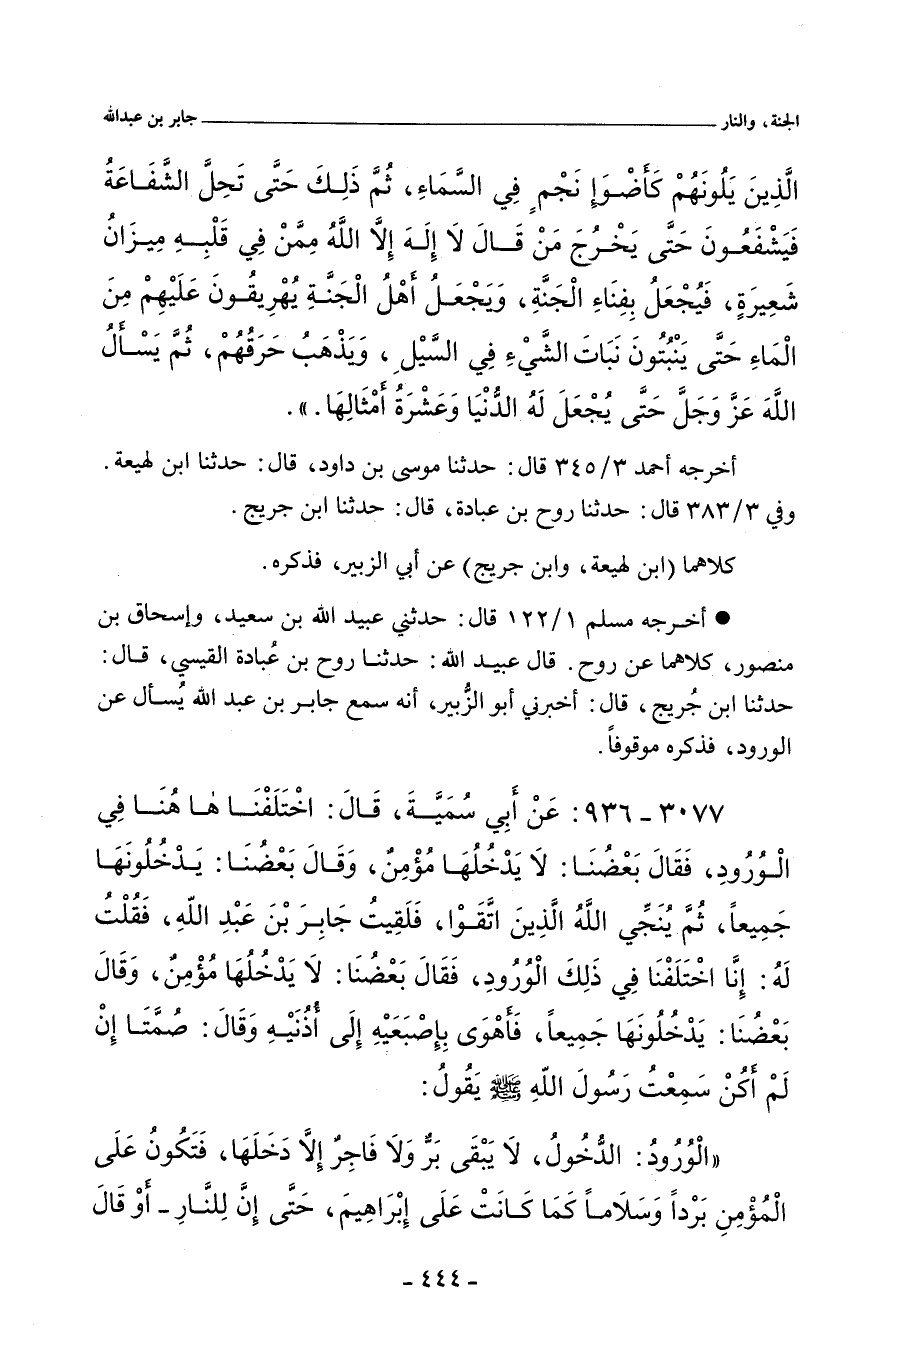 الجنة، والنار ــــــــــــــــــــ جابر بن عبدالله
الَّذِينَ يَلُونَهُمْ كَأَضْوَإِ نَجْمٍ فِي السَّمَاءِ، ثُمَّ ذَلِكَ حَتَّى تَحِلَّ الشَّفَاعَةُ
فَيَشْفَعُونَ حَتَّى يَخْرُجَ مَنْ قَالَ لَا إِلَهَ إِلَّا اللَّهُ مِمَّنْ فِي قَلْبِهِ مِيزَانُ
شَعِيرَةٍ، فَيُجْعَلُ بِفِنَاءِ الْجَنَّةِ، وَيَجْعَلُ أَهْلُ الْجَنَّةِ يُهْرِيقُونَ عَلَيْهِمْ مِنَ
الْمَاءِ حَتَّى يَنْبُتُونَ نَبَاتَ الشَّيْءِ فِي السَّيْلِ، وَيَذْهَبُ حَرَقُهُمْ، ثُمَّ يَسْأَلُ
اللَّهَ عَزَّ وَجَلَّ حَتَّى يُجْعَلَ لَهُ الدُّنْيَا وَعَشْرَةُ أَمْثَالِهَا.».
أخرجه أحمد ٣/٣٤٥ قال: حدثنا موسى بن داود، قال: حدثنا ابن لهيعة.
وفي ٣/٣٨٣ قال: حدثنا روح بن عبادة، قال: حدثنا ابن جريج.
كلاهما (ابن لهيعة، وابن جريج) عن أبي الزبير، فذكره.
● أخرجه مسلم ١/١٢٢ قال: حدثني عبيد الله بن سعيد، وإسحاق بن
منصور، كلاهما عن روح. قال عبيد الله: حدثنا روح بن عُبادة القيسي، قال:
حدثنا ابن جُريج، قال: أخبرني أبو الزُّبير، أنه سمع جابر بن عبد الله يُسأل عن
الورود، فذكره موقوفاً.
٣٠٧٧ ـ ٩٣٦: عَنْ أَبِي سُمَيَّةَ، قَالَ: اخْتَلَفْنَا هَا هُنَا فِي
الْوُرُودِ، فَقَالَ بَعْضُنَا: لَا يَدْخُلُهَا مُؤْمِنٌ، وَقَالَ بَعْضُنَا: يَدْخُلُونَهَا
جَمِيعاً، ثُمَّ يُنَجِّي اللَّهُ الَّذِينَ اتَّقَوْا، فَلَقِيتُ جَابِرَ بْنَ عَبْدِ اللَّهِ، فَقُلْتُ
لَهُ: إِنَّا اخْتَلَفْنَا فِي ذَلِكَ الْوُرُودِ، فَقَالَ بَعْضُنَا: لَا يَدْخُلُهَا مُؤْمِنٌ، وَقَالَ
بَعْضُنَا: يَدْخُلُونَهَا جَمِيعاً، فَأَهْوَى بِإِصْبَعَيْهِ إِلَى أُذُنَيْهِ وَقَالَ: صُمَّتَا إِنْ
لَمْ أَكُنْ سَمِعْتُ رَسُولَ اللَّهِ ﷺ يَقُولُ:
«الْوُرُودُ: الدُّخُولُ، لَا يَبْقَى بَرٌّ وَلَا فَاجِرٌ إِلَّا دَخَلَهَا، فَتَكُونُ عَلَى
الْمُؤْمِنِ بَرْداً وَسَلَاماً كَمَا كَانَتْ عَلَى إِبْرَاهِيمَ، حَتَّى إِنَّ لِلنَّارِ - أَوْ قَالَ
- ٤٤٤ -